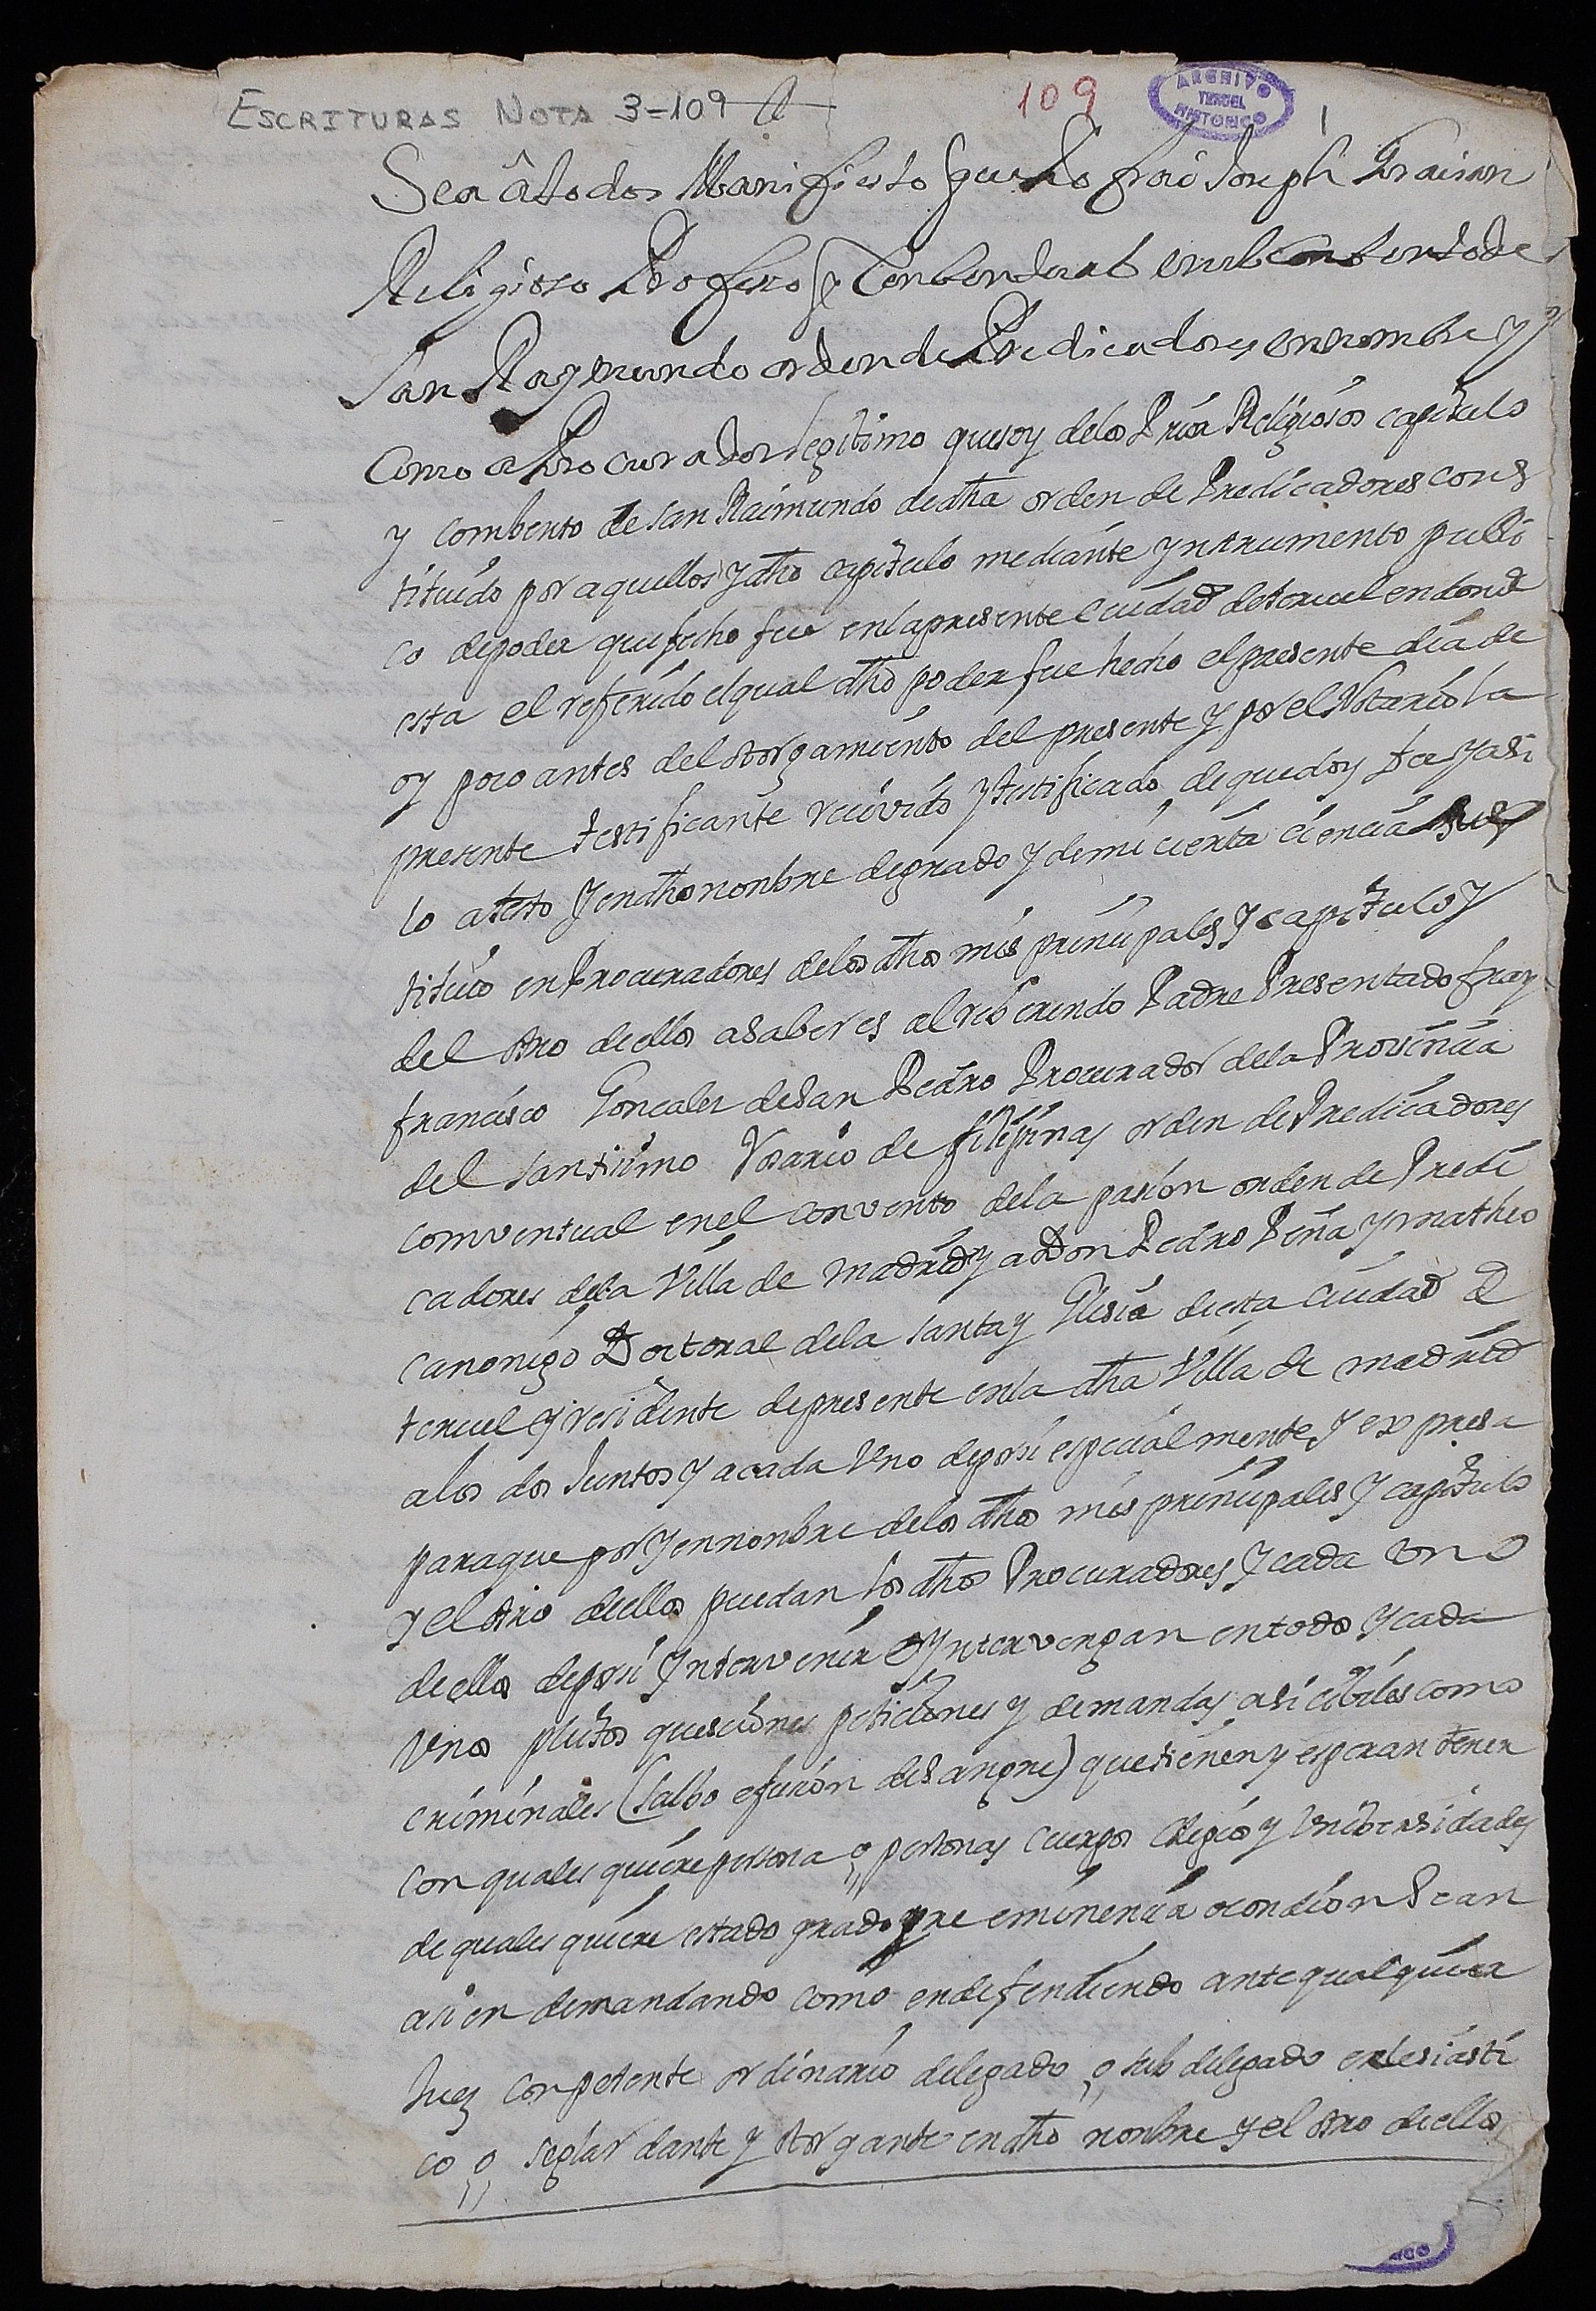 ESCRITURAS NOTA 3-109
109
ARCHIVO
TERUEL
HISTORICO
1
Sea â todos Manifiesto que Yo frai Joseph Gracian
Religioso Profeso y Conbentual en el Conbento de
San Raymundo orden de Predicadores en nombre y
Como a Procurador legitimo que soy delos Prior Religiosos capitulo
y combento de san Raimundo de dha orden de Predicadores cons
tituido por aquellos y dho capitulo mediante ynstrumento publi
co de poder que fecho fue en la presente ciudad de teruel en dond
esta el referido el qual dho poder fue hecho el presente dia de
oy poco antes del otorgamiento del presente y por el Notario la
presente testificante recivido y testificado de que doy fee y asi
lo atesto y en dho nonbre de grado y de mi cierta ciencia sus
tituio en Procuradores delos dhos mis principales y capitulo y
del otro de ellos a saber es al reberendo Padre Presentado fray
francisco Goncales de san Pedro Procurador dela Provincia
del santisimo Rosario de filipinas orden de Predicadores
comventual en el convento dela pasion orden de Predi
cadores dela Villa de madrid y a Don Pedro Peña y matheo
canonigo Doctoral dela santa yglesia de esta ciudad d
teruel y residente de presente en la dha Villa de madrid
alos dos Juntos y a cada Uno de porsi especialmente y expresa
para que por y en nonbre delos dhos mis principales y capitulo
y el otro de ellos puedan los dhos Procuradores y cada uno
de ellos de porsi yntervenir e yntervengan en todos y cada
Unos pleitos questiones peticiones y demandas asi cibiles como
criminales (salbo efusion de sangre) que tienen y esperan tener
con quales quiere persona o personas cuerpos colegios y Unibersidades
de quales quiere estado grado preeminencia o condicion sean
asi en demandando como en defendiendo ante qualquiera
Juez conpetente ordinario delegado o sub delegado eclesiasti
co o seglar dante y otorgante en dho nonbre y el otro de ellos